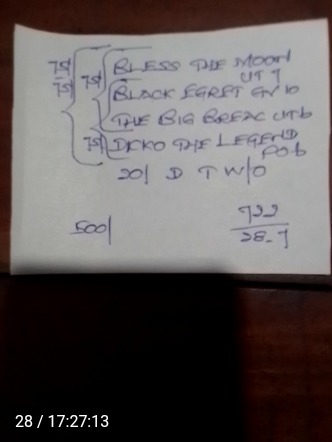 75/ BLESS THE MOON
UT 7
75/ 75/ BLACK EGRET GN 10
THE BIG BREAC UT 6
75/ DEKO THE LEGEND
PO 6
20/ D T W/O
500/
722
28-7
28 / 17:27:13